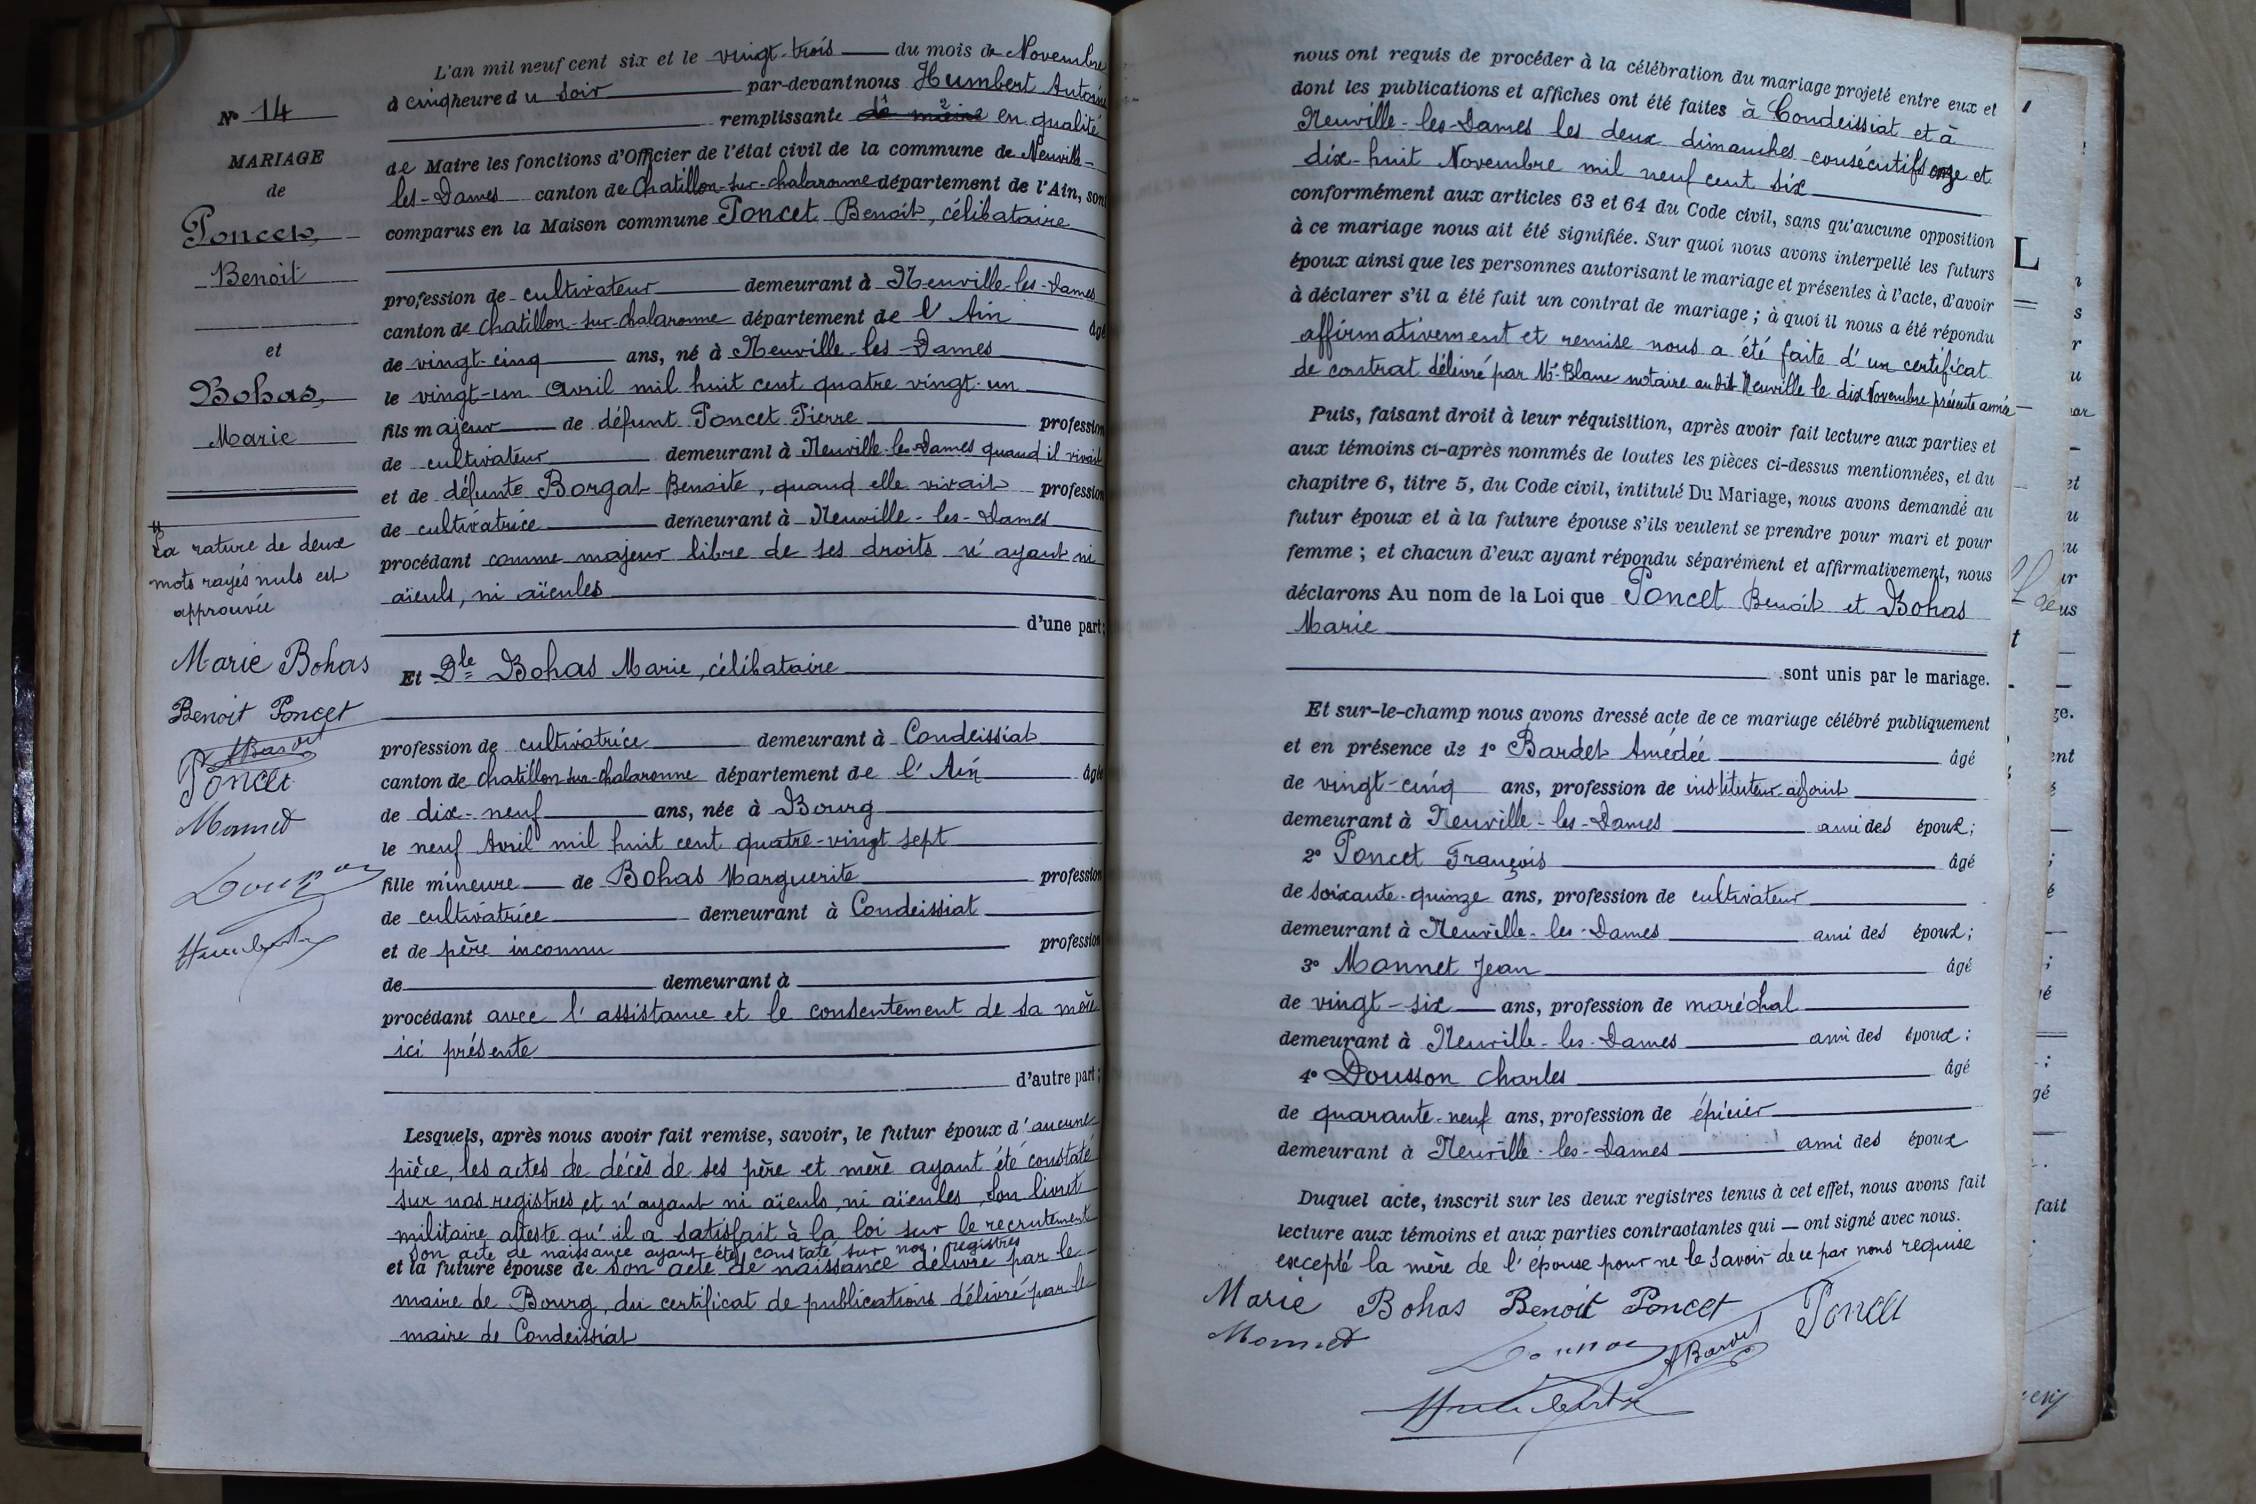 N° 14
MARIAGE
de
Poncet,
Benoit
et
Bohas,
Marie
La rature de deux
mots rayés nuls est
approuvée
Marie Bohas
Benoit Poncet
ABardet
Poncet
Monnet
Dousson
Humbert
L'an mil neuf cent six et le vingt-trois du mois de Novembre
à cinq heure du soir par-devant nous Humbert Antoine
remplissant en qualité
de Maire les fonctions d'Officier de l'état civil de la commune de Neuville-
les-Dames canton de Chatillon-sur-Chalaronne département de l'Ain, sont
comparus en la Maison commune Poncet Benoit, célibataire
profession de cultivateur demeurant à Neuville-les-Dames
canton de Chatillon-sur-Chalaronne département de l'Ain âgé
de vingt-cinq ans, né à Neuville-les-Dames
le vingt-un Avril mil huit cent quatre vingt-un
fils majeur de défunt Poncet Pierre profession
de cultivateur demeurant à Neuville-les-Dames quand il vivait
et de défunte Borgat Benoite, quand elle vivait profession
de cultivatrice demeurant à Neuville-les-Dames
procédant comme majeur libre de ses droits n'ayant ni
aïeuls, ni aïeules
d'une part;
Et Dle Bohas Marie, célibataire
profession de cultivatrice demeurant à Condeissiat
canton de Chatillon-sur-Chalaronne département de l'Ain âgée
de dix-neuf ans, née à Bourg
le neuf Avril mil huit cent quatre-vingt sept
fille mineure de Bohas Marguerite profession
de cultivatrice demeurant à Condeissiat
et de père inconnu profession
de demeurant à
procédant avec l'assistance et le consentement de sa mère
ici présente
d'autre part;
Lesquels, après nous avoir fait remise, savoir, le futur époux d'aucune
pièce, les actes de décès de ses père et mère ayant été constaté
sur nos registres et n'ayant ni aïeuls, ni aïeules, son livret
militaire atteste qu'il a satisfait à la loi sur le recrutement
son acte de naissance ayant été constaté sur nos registres
et la future épouse de son acte de naissance délivré par le
maire de Bourg, du certificat de publications délivré par le
maire de Condeissiat
nous ont requis de procéder à la célébration du mariage projeté entre eux et
dont les publications et affiches ont été faites à Condeissiat et à
Neuville-les-Dames les deux dimanches consécutifs onze et
dix-huit Novembre mil neuf cent six
conformément aux articles 63 et 64 du Code civil, sans qu'aucune opposition
à ce mariage nous ait été signifiée. Sur quoi nous avons interpellé les futurs
époux ainsi que les personnes autorisant le mariage et présentes à l'acte, d'avoir
à déclarer s'il a été fait un contrat de mariage; à quoi il nous a été répondu
affirmativement et remise nous a été faite d'un certificat
de contrat délivré par Me Blanc notaire audit Neuville le dix Novembre présente année
Puis, faisant droit à leur réquisition, après avoir fait lecture aux parties et
aux témoins ci-après nommés de toutes les pièces ci-dessus mentionnées, et du
chapitre 6, titre 5, du Code civil, intitulé Du Mariage, nous avons demandé au
futur époux et à la future épouse s'ils veulent se prendre pour mari et pour
femme; et chacun d'eux ayant répondu séparément et affirmativement, nous
déclarons Au nom de la Loi que Poncet Benoit et Bohas
Marie
sont unis par le mariage.
Et sur-le-champ nous avons dressé acte de ce mariage célébré publiquement
et en présence de 1° Bardet Amédée âgé
de vingt-cinq ans, profession de instituteur-adjoint
demeurant à Neuville-les-Dames ami des époux;
2° Poncet François âgé
de soixante-quinze ans, profession de cultivateur
demeurant à Neuville-les-Dames ami des époux;
3° Monnet Jean âgé
de vingt-six ans, profession de maréchal
demeurant à Neuville-les-Dames ami des époux;
4° Dousson Charles âgé
de quarante-neuf ans, profession de épicier
demeurant à Neuville-les-Dames ami des époux
Duquel acte, inscrit sur les deux registres tenus à cet effet, nous avons fait
lecture aux témoins et aux parties contractantes qui — ont signé avec nous.
excepté la mère de l'épouse pour ne le savoir de ce par nous requise
Marie Bohas Benoit Poncet Poncet
Monnet Dousson ABardet
Humbert